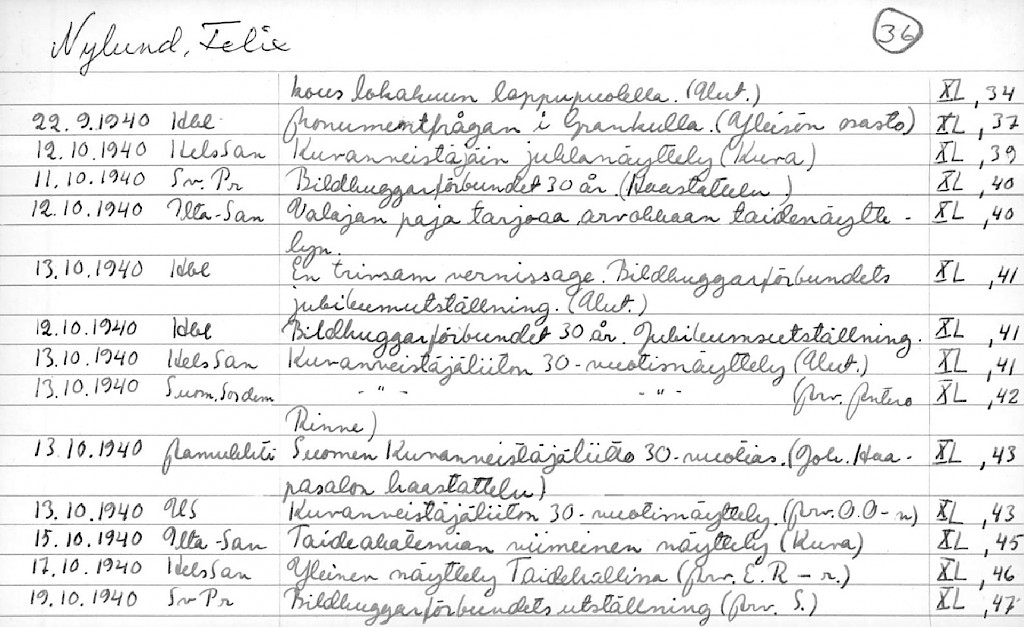 Nylund, Felix 36
kous lokakuun loppupuolella. (Alut.) XL, 34
22.9.1940 Hbl Monumentfrågan i Grankulla. (Yleisön osasto) XL, 37
12.10.1940 HelsSan Kuvanveistäjäin juhlanäyttely (Kuva) XL, 39
11.10.1940 Sv. Pr Bildhuggarförbundet 30 år. (Haastattelu) XL, 40
12.10.1940 Ilta-San Valajan paja tarjoaa arvokkaan taidenäytte- XL, 40
lyn.
13.10.1940 Hbl En trivsam vernissage. Bildhuggarförbundets XL, 41
jubileumutställning. (Alut.)
12.10.1940 Hbl Bildhuggarförbundet 30 år. Jubileumsutställning. XL, 41
13.10.1940 HelsSan Kuvanveistäjäliiton 30-vuotisnäyttely (Alut.) XL, 41
13.10.1940 Suom.Sosdem -"- -"- (Arv. Antero XL, 42
Rinne)
13.10.1940 Aamulehti Suomen Kuvanveistäjäliitto 30-vuotias. (Joh. Haa- XL, 43
pasalon haastattelu)
13.10.1940 US Kuvanveistäjäliiton 30-vuotisnäyttely. (Arv. O.O-n) XL, 43
15.10.1940 Ilta-San Taideakatemian viimeinen näyttely (Kuva) XL, 45
17.10.1940 HelsSan Yleinen näyttely Taidehallissa (Arv. E.R-r.) XL, 46
19.10.1940 Sv Pr Bildhuggarförbundets utställning (Arv. S.) XL, 47